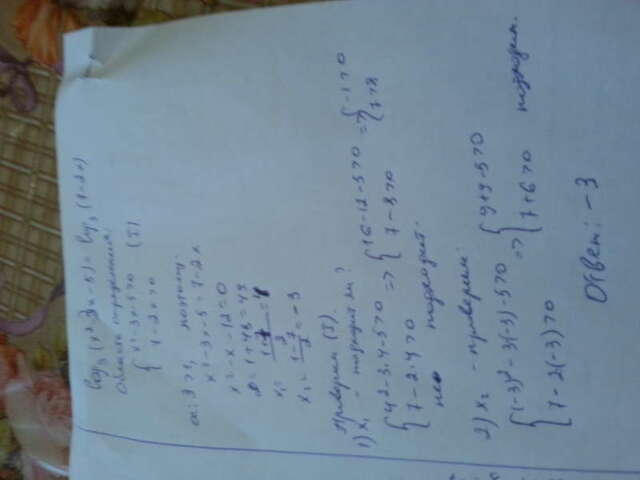 log₃(x²-3x-5) = log₃(7-2x)
Область определения:
{ x²-3x-5>0
{ 7-2x>0 (I)
a: 3>1, поэтому
x²-3x-5=7-2x
x²-x-12=0
D=1+48=49
x₁ = (1+7)/2 = 4
x₂ = (1-7)/2 = -3
Проверим (I).
1) x₁ - подходит ли?
{ 4²-3·4-5>0 => { 16-12-5>0 => { -1>0
{ 7-2·4>0 { 7-8>0
не подходит.
2) x₂ - проверим:
{ (-3)²-3(-3)-5>0 => { 9+9-5>0
{ 7-2(-3)>0 { 7+6>0 подходит.
Ответ: -3